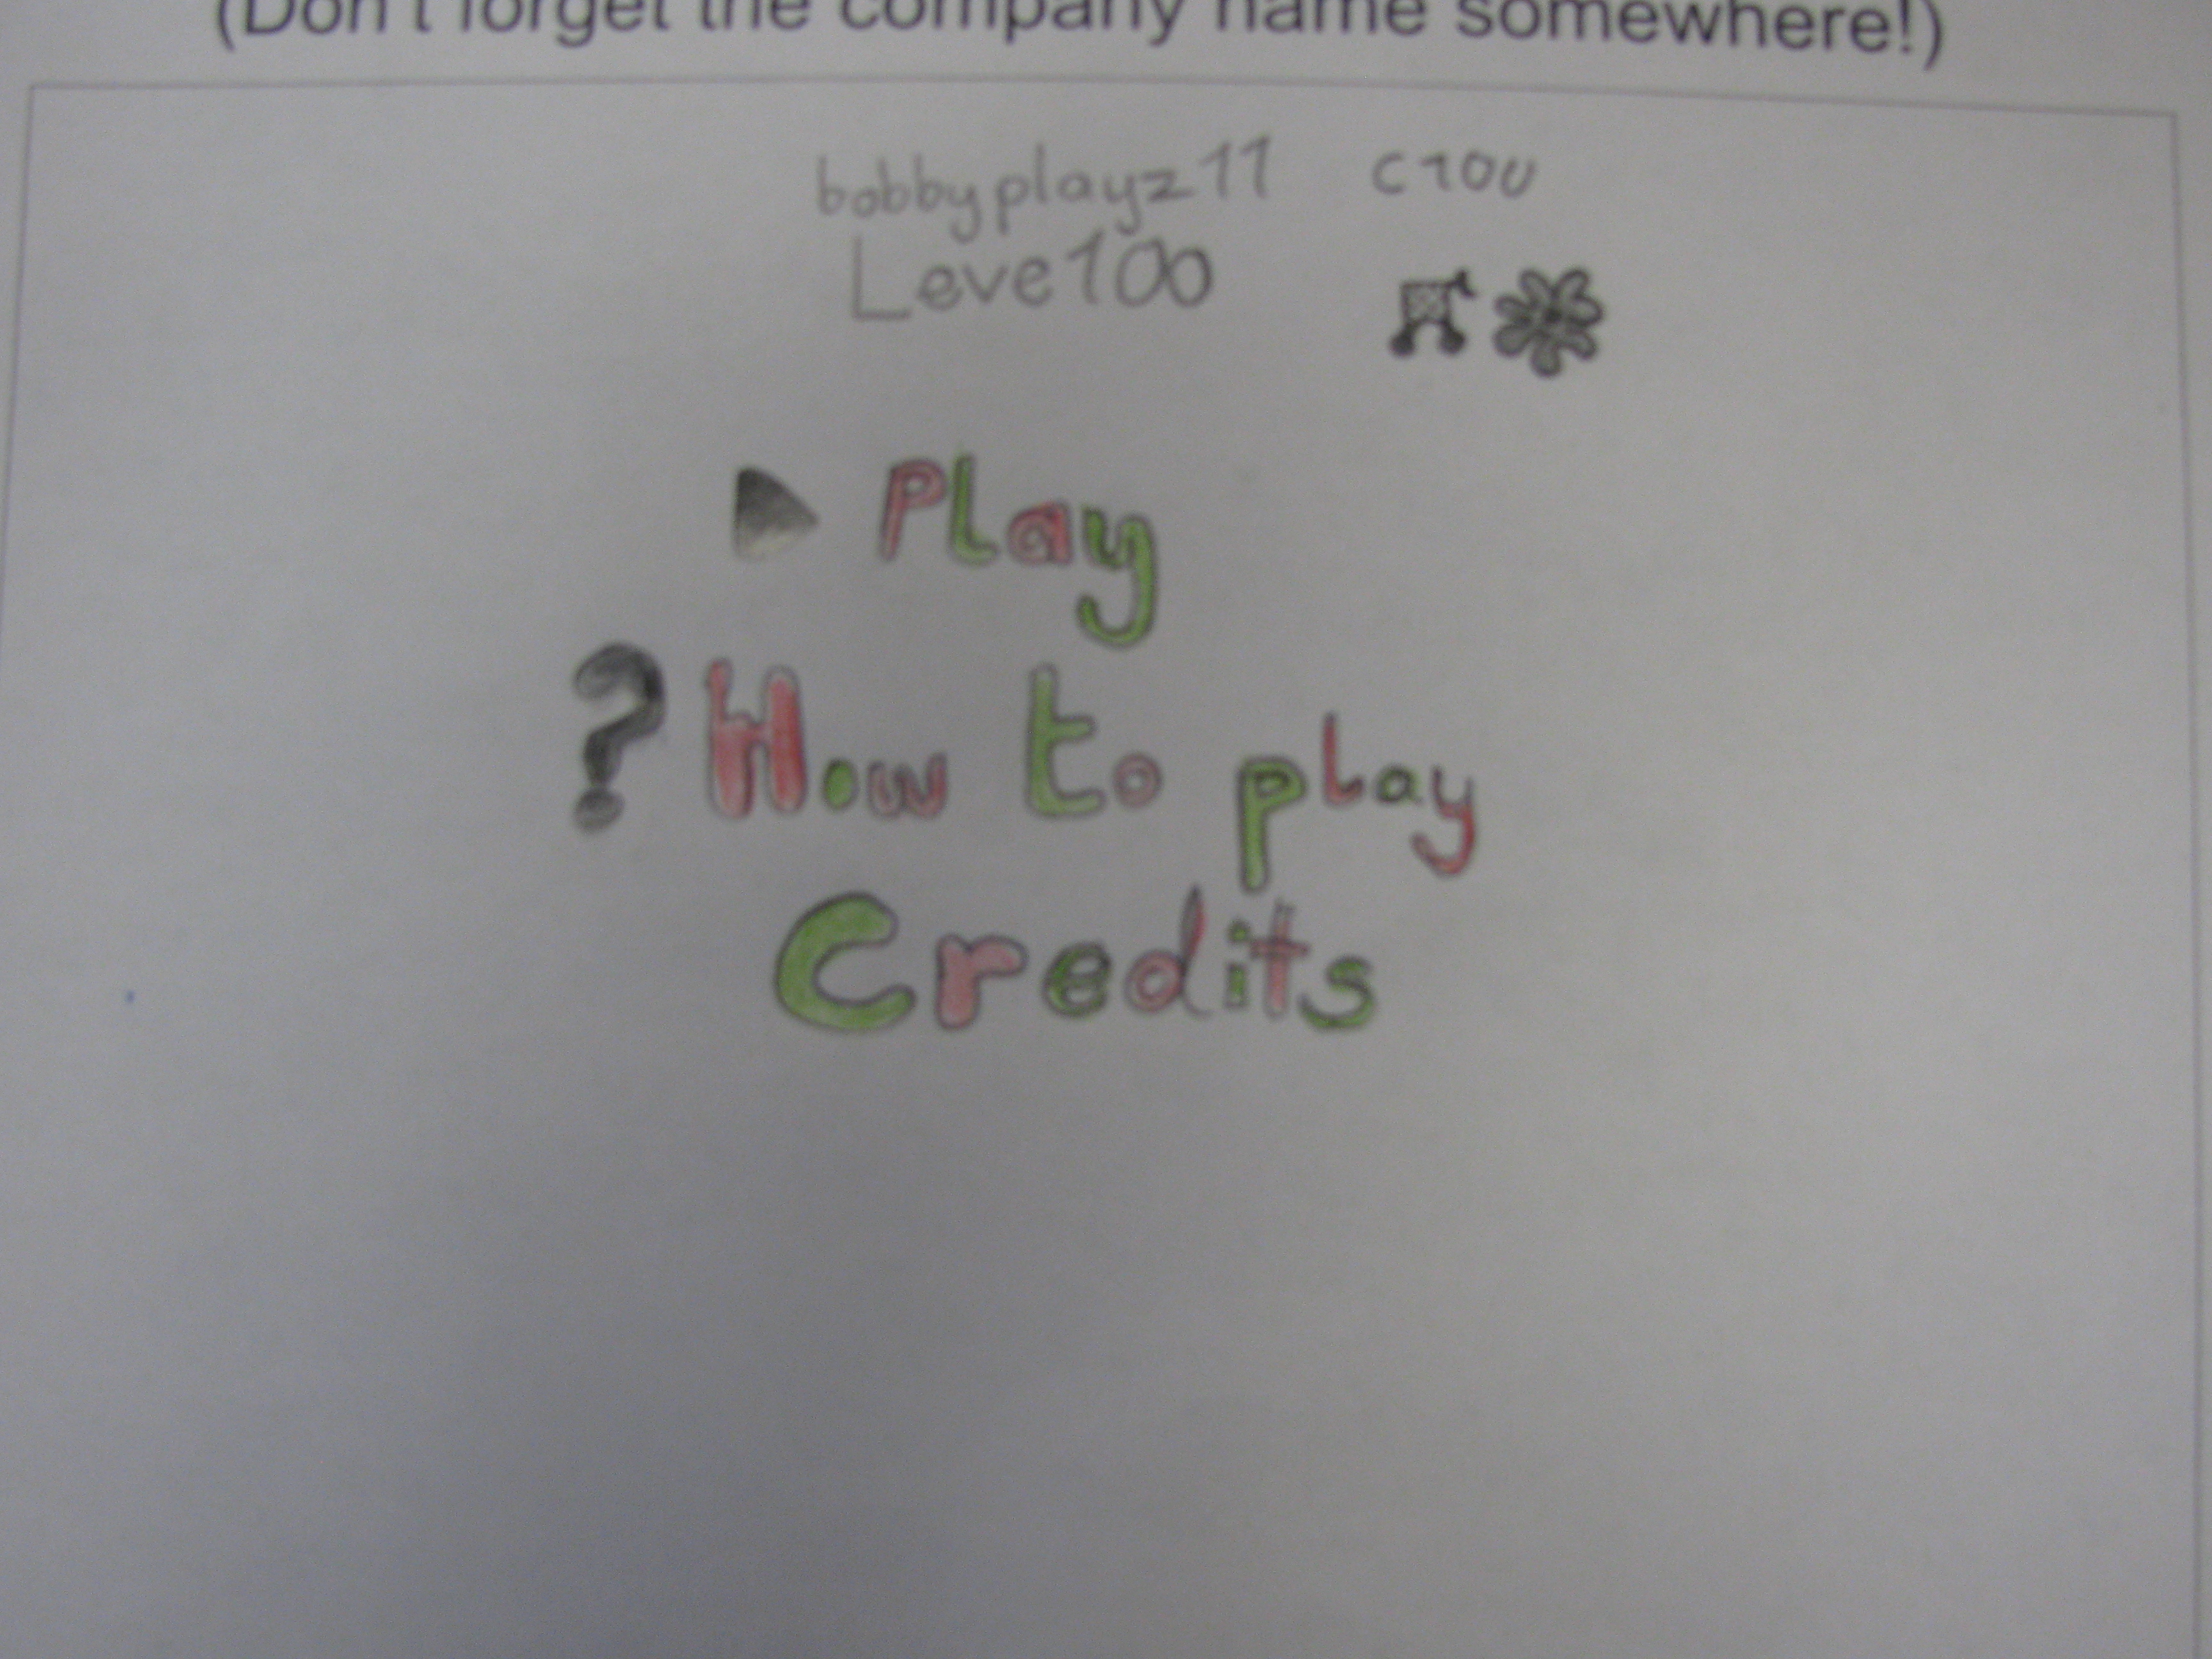 (Don't forget the company name somewhere!)
bobbyplayz11 C100
Leve100
Play
? How to play
Credits